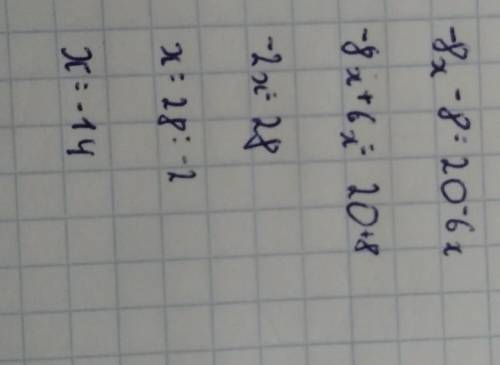 -8x - 8 = 20 - 6x
-8x + 6x = 20 + 8
-2x = 28
x = 28 : -2
x = -14